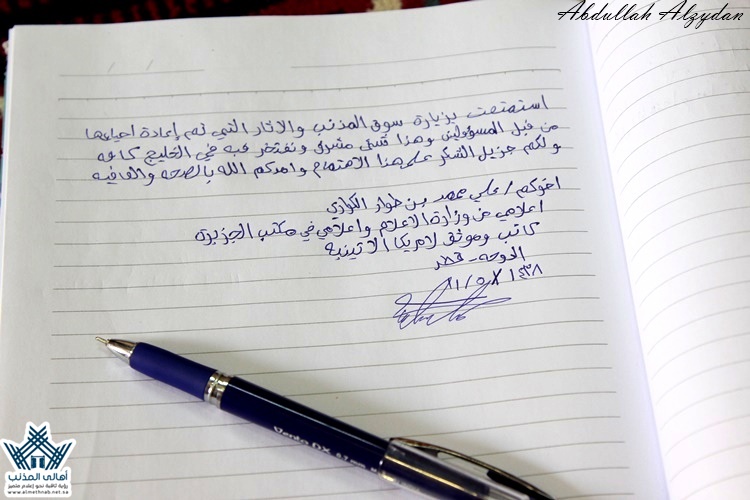 Abdullah Alzydan
استمتعت بزيارة سوق المذنب والاثار التي تم إعادة احياءها
من قبل المسؤولين وهذا شئ مشرف ونفتخر به في الخليج كافه
ولكم جزيل الشكر على هذا الاهتمام وامدكم الله بالصحه والعافيه
اخوكم / علي محمد بن طوار الكواري
اعلامي من وزارة الاعلام واعلامي في مكتب الجزيرة
كاتب وموثق لامريكا الاتينية
الدوحه - قطر
١٤٣٨
Vento DX 0.7 mm
أهالي المذنب
رؤية ثاقبة نحو إعلام متميز
www.almethnab.net.sa